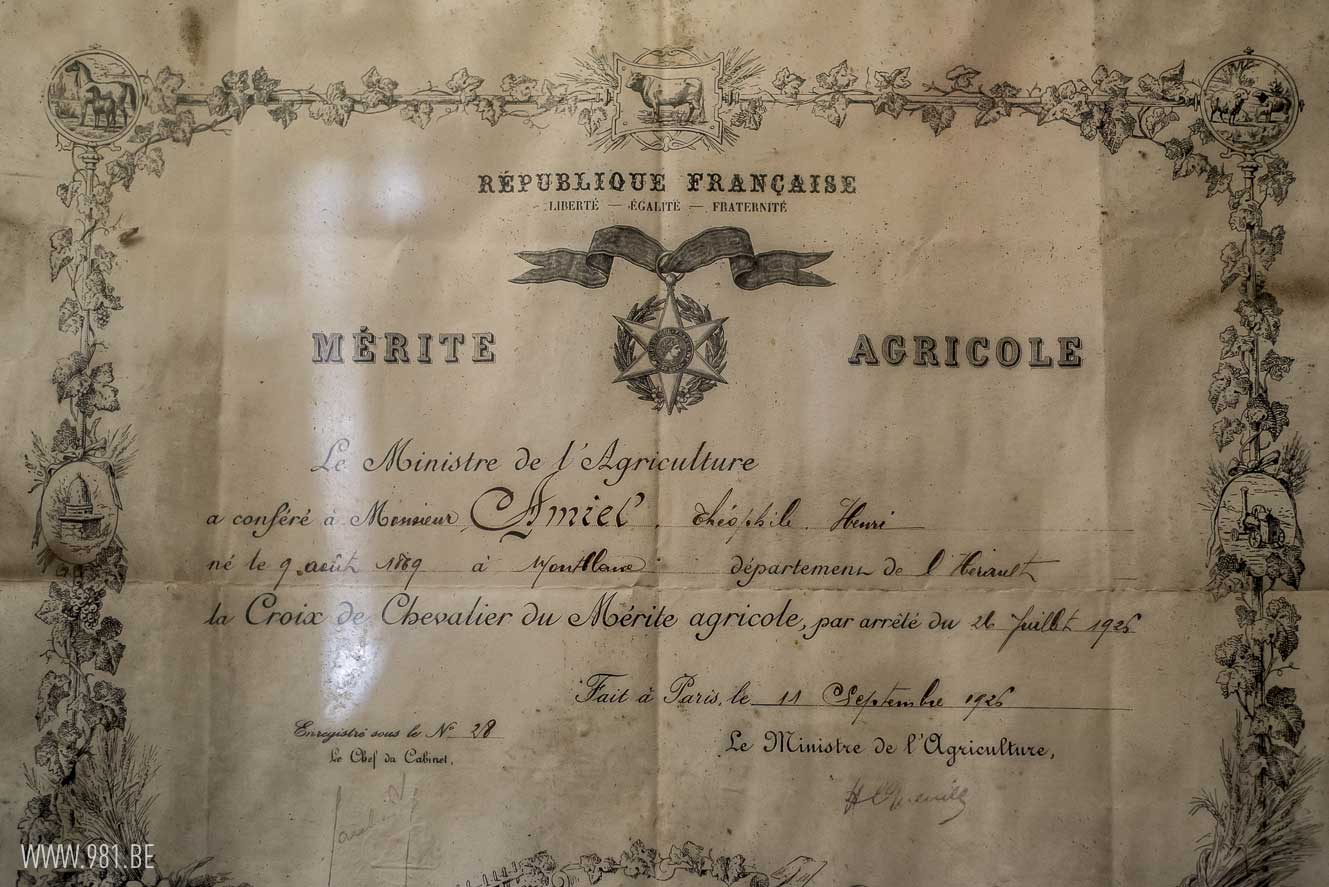 RÉPUBLIQUE FRANÇAISE
LIBERTÉ — ÉGALITÉ — FRATERNITÉ
MÉRITE AGRICOLE
Le Ministre de l'Agriculture
a conféré à Monsieur Amiel, Théophile Henri
né le 9 août 1869 à Montblanc département de l'Hérault
la Croix de Chevalier du Mérite agricole, par arrêté du 26 Juillet 1926
Fait à Paris, le 11 Septembre 1926
Enregistré sous le N° 28
Le Chef du Cabinet,
Le Ministre de l'Agriculture,
WWW.981.BE